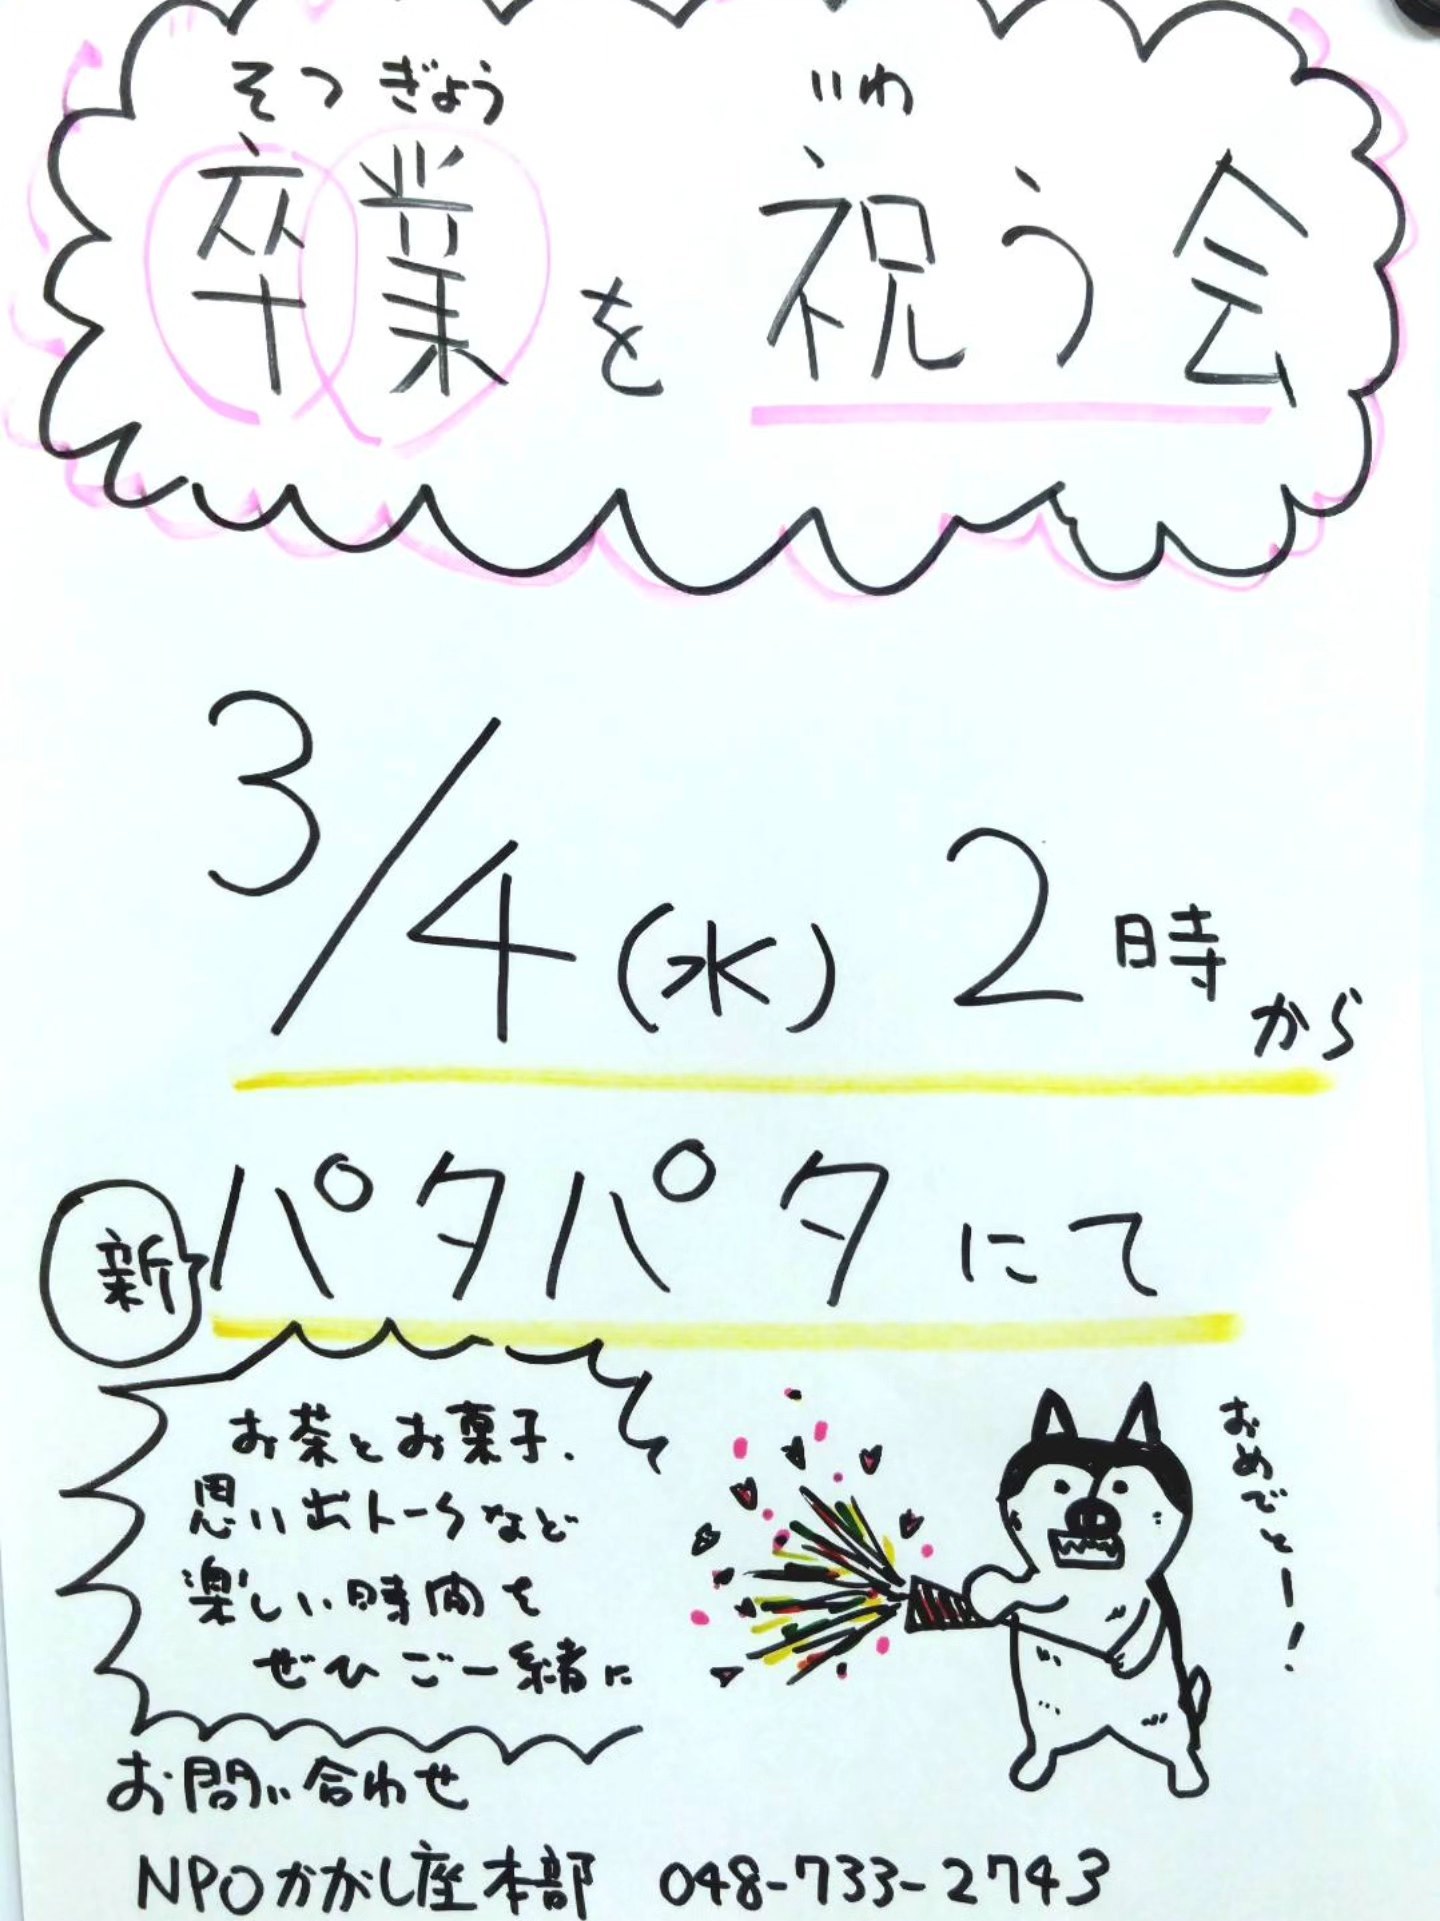 そつぎょう いわ
卒業を祝う会
3/4(水) 2時から
新パタパタにて
お茶とお菓子、
思い出トークなど
楽しい時間を
ぜひご一緒に
おめでとー!
お問い合わせ
NPOかかし座本部 048-733-2743